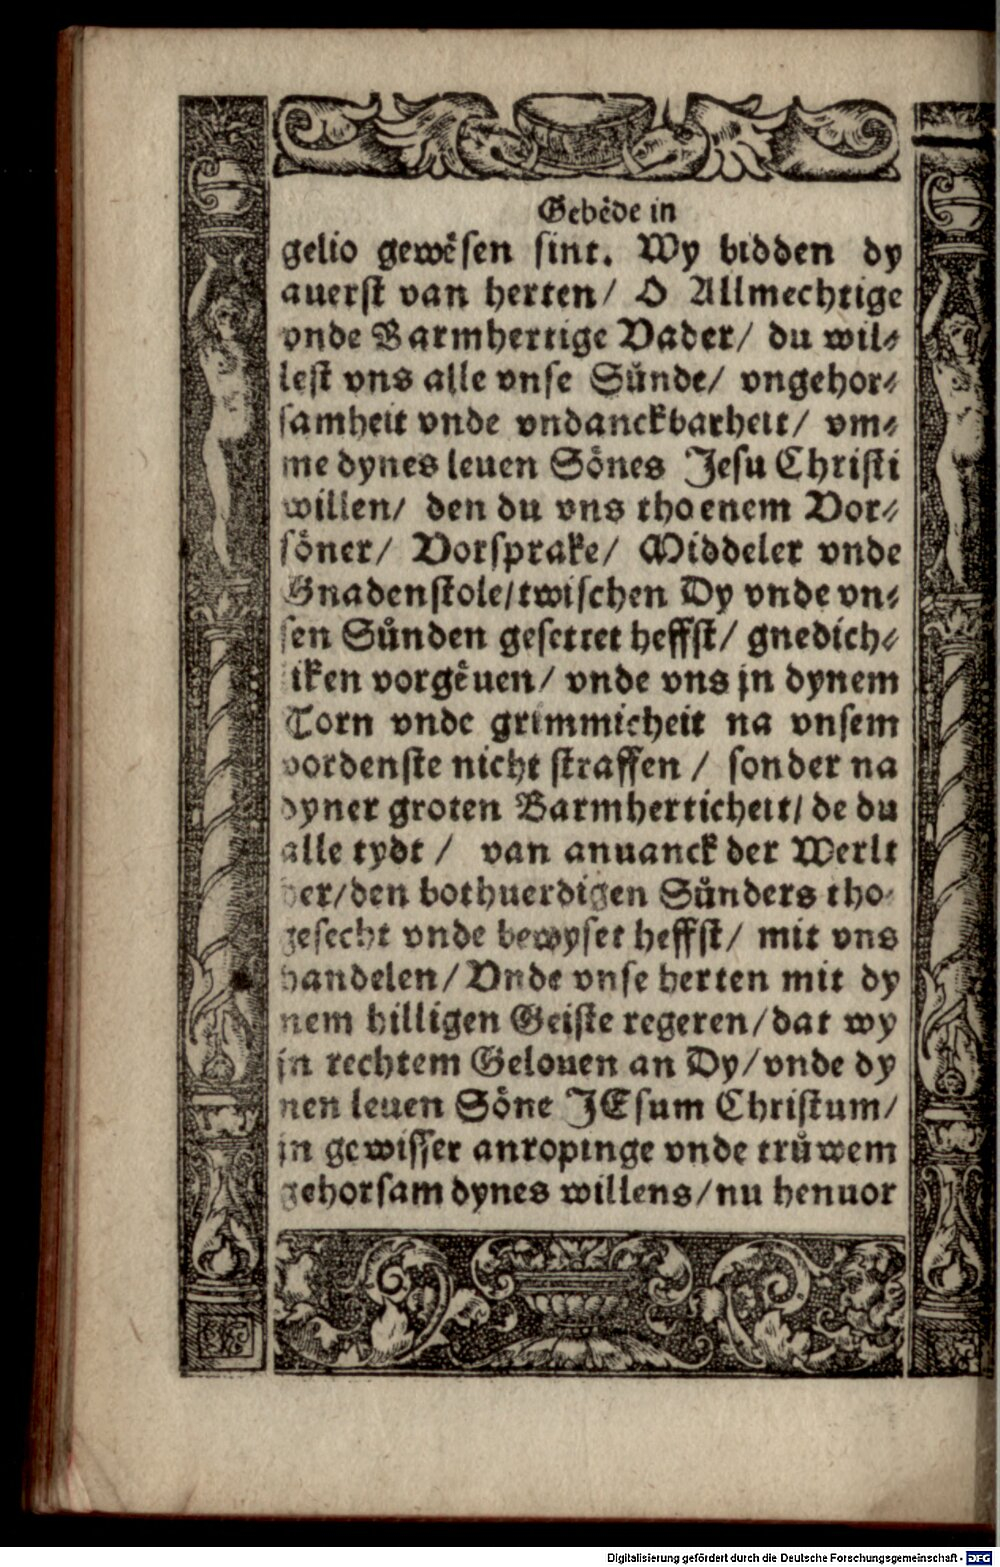 Gebêde in
gelio gewêsen sint. Wy bidden dy
auerst van herten/ O Allmechtige
vnde Barmhertige Vader/ du wil⸗
lest vns alle vnse Sůnde/ vngehor⸗
samheit vnde vndanckbarheit/ vm⸗
me dynes leuen Sönes Jesu Christi
willen/ den du vns tho enem Vor⸗
söner/ Vorsprake/ Middeler vnde
Gnadenstole/ twischen Dy vnde vn⸗
sen Sůnden gesettet heffst/ gnedich⸗
liken vorgêuen/ vnde vns jn dynem
Torn vnde grimmicheit na vnsem
vordenste nicht straffen / sonder na
dyner groten Barmherticheit/ de du
alle tydt / van anuanck der Werlt
her/ den bothuerdigen Sůnders tho
gesecht vnde bewyset heffst/ mit vns
handelen/ Vnde vnse herten mit dy
nem hilligen Geiste regeren/ dat wy
jn rechtem Gelouen an Dy/ vnde dy
nen leuen Söne JEsum Christum/
jn gewisser anropinge vnde trůwem
gehorsam dynes willens/ nu henuor
Digitalisierung gefördert durch die Deutsche Forschungsgemeinschaft - DFG